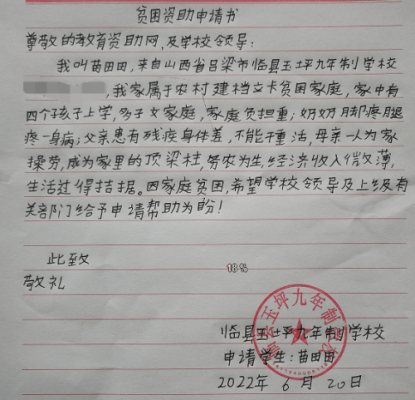 贫困资助申请书
尊敬的教育资助网,及学校领导:
我叫苗田田,来自山西省吕梁市临县玉坪九年制学校
,我家属于农村建档立卡贫困家庭,家中有
四个孩子上学,多子女家庭,家庭负担重;奶奶脚疼腿
疼一身病;父亲患有残疾身体差,不能干重活,母亲一人为家
操劳,成为家里的顶梁柱,务农为生,经济收入微薄,
生活过得拮据。因家庭贫困,希望学校领导及上级有
关部门给予申请帮助为盼!
此致
18%
敬礼
临县玉坪九年制学校
临县玉坪九年制学校
申请学生:苗田田
2022年6月20日